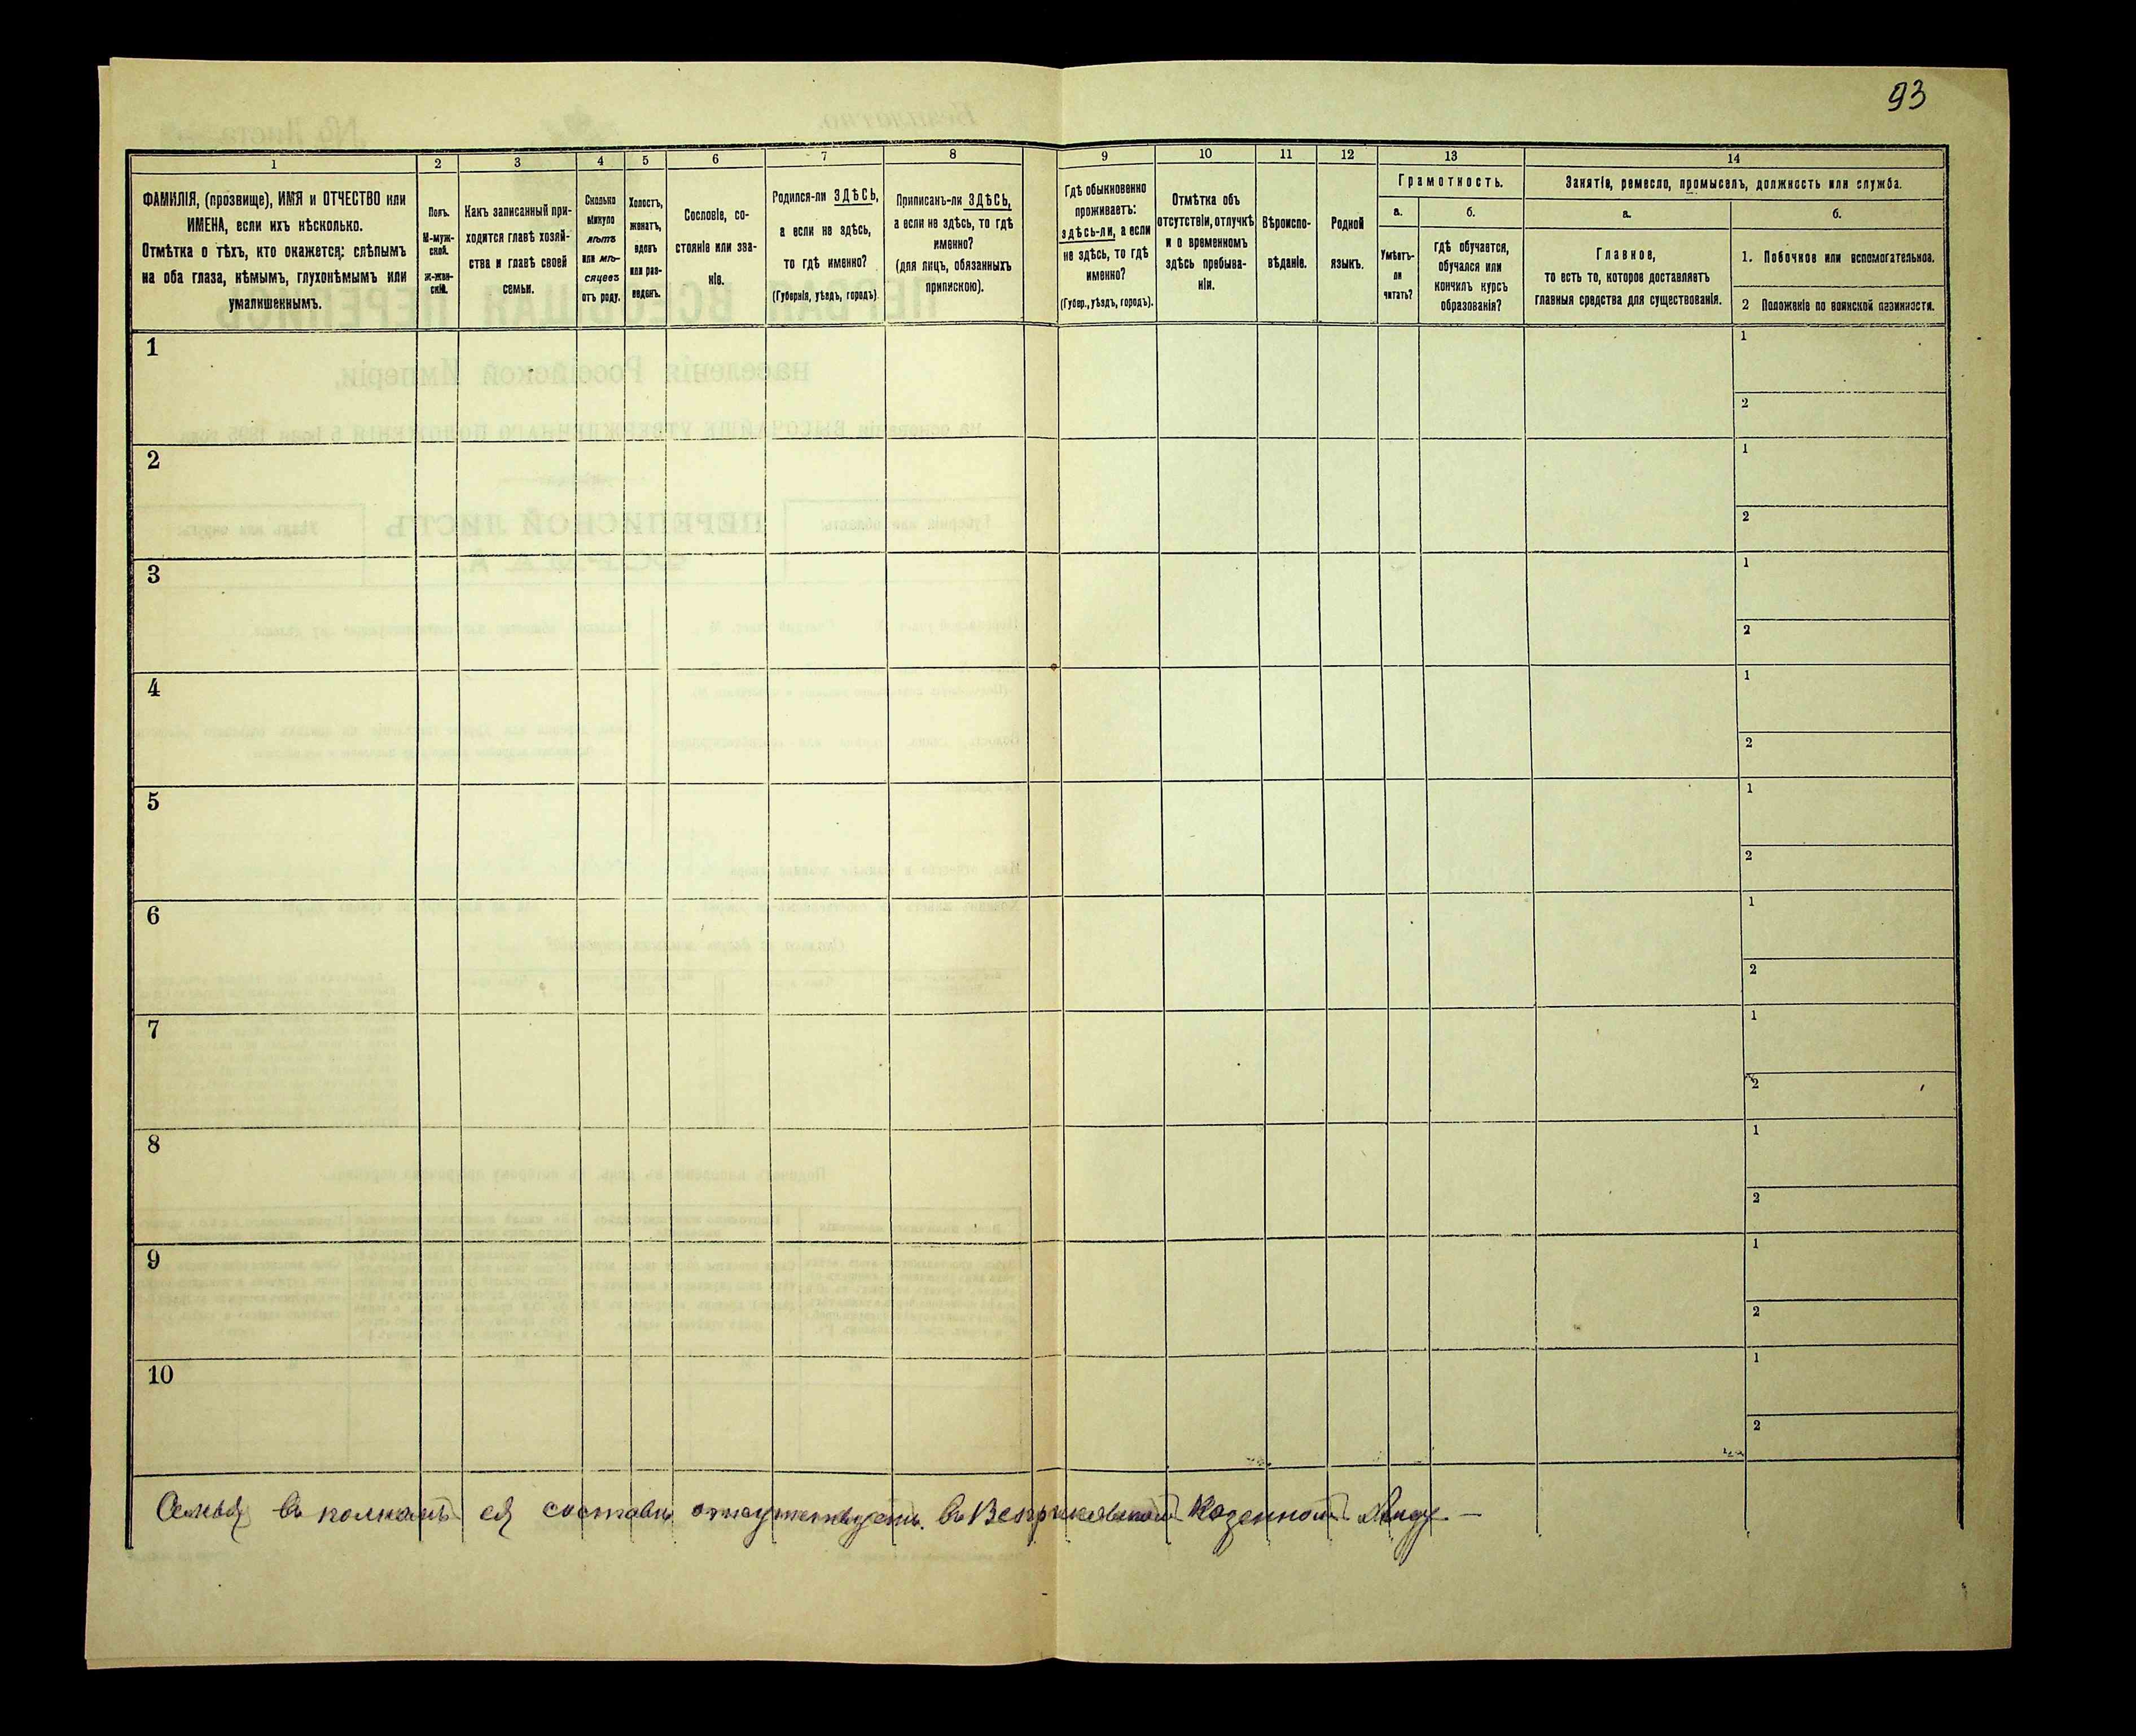 93
1 2 3 4 5 6 7 8 9 10 11 12 13 14
ФАМИЛІЯ, (прозвище), ИМЯ и ОТЧЕСТВО или
ИМЕНА, если ихъ нѣсколько.
Отмѣтка о тѣхъ, кто окажется: слѣпымъ
на оба глаза, нѣмымъ, глухонѣмымъ или
умалишеннымъ.
Полъ.
М-муж-
ской.
Ж-жен-
скій.
Какъ записанный при-
ходится главѣ хозяй-
ства и главѣ своей
семьи.
Сколько
минуло
лѣтъ
или мѣ-
сяцевъ
отъ роду.
Холостъ,
женатъ,
вдовъ
или раз-
веденъ.
Сословіе, со-
стояніе или зва-
ніе.
Родился-ли ЗДѢСЬ,
а если не здѣсь,
то гдѣ именно?
(Губернія, уѣздъ, городъ)
Приписанъ-ли ЗДѢСЬ,
а если не здѣсь, то гдѣ
именно?
(для лицъ, обязанныхъ
припискою).
Гдѣ обыкновенно
проживаетъ:
здѣсь-ли, а если
не здѣсь, то гдѣ
именно?
(Губер., уѣздъ, городъ).
Отмѣтка объ
отсутствіи, отлучкѣ
и о временномъ
здѣсь пребыва-
ніи.
Вѣроиспо-
вѣданіе.
Родной
языкъ.
Грамотность.
а.
Умѣетъ-
ли
читать?
б.
гдѣ обучается,
обучался или
кончилъ курсъ
образованія?
Занятіе, ремесло, промыселъ, должность или служба.
а.
Главное,
то есть то, которое доставляетъ
главныя средства для существованія.
б.
1. Побочное или вспомогательное.
2 Положеніе по воинской повинности.
1
1
2
2
1
2
3
1
2
4
1
2
5
1
2
6
1
2
7
1
2
8
1
2
9
1
2
10
1
2
Семья въ полномъ ея составѣ отсутствуетъ въ Казенномъ